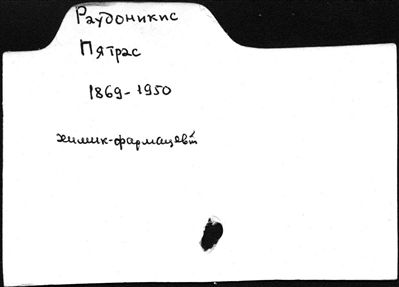 Раудоникис
Пятрас
1869-1950
химик-фармацевт